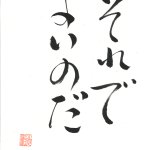 それで
よいのだ